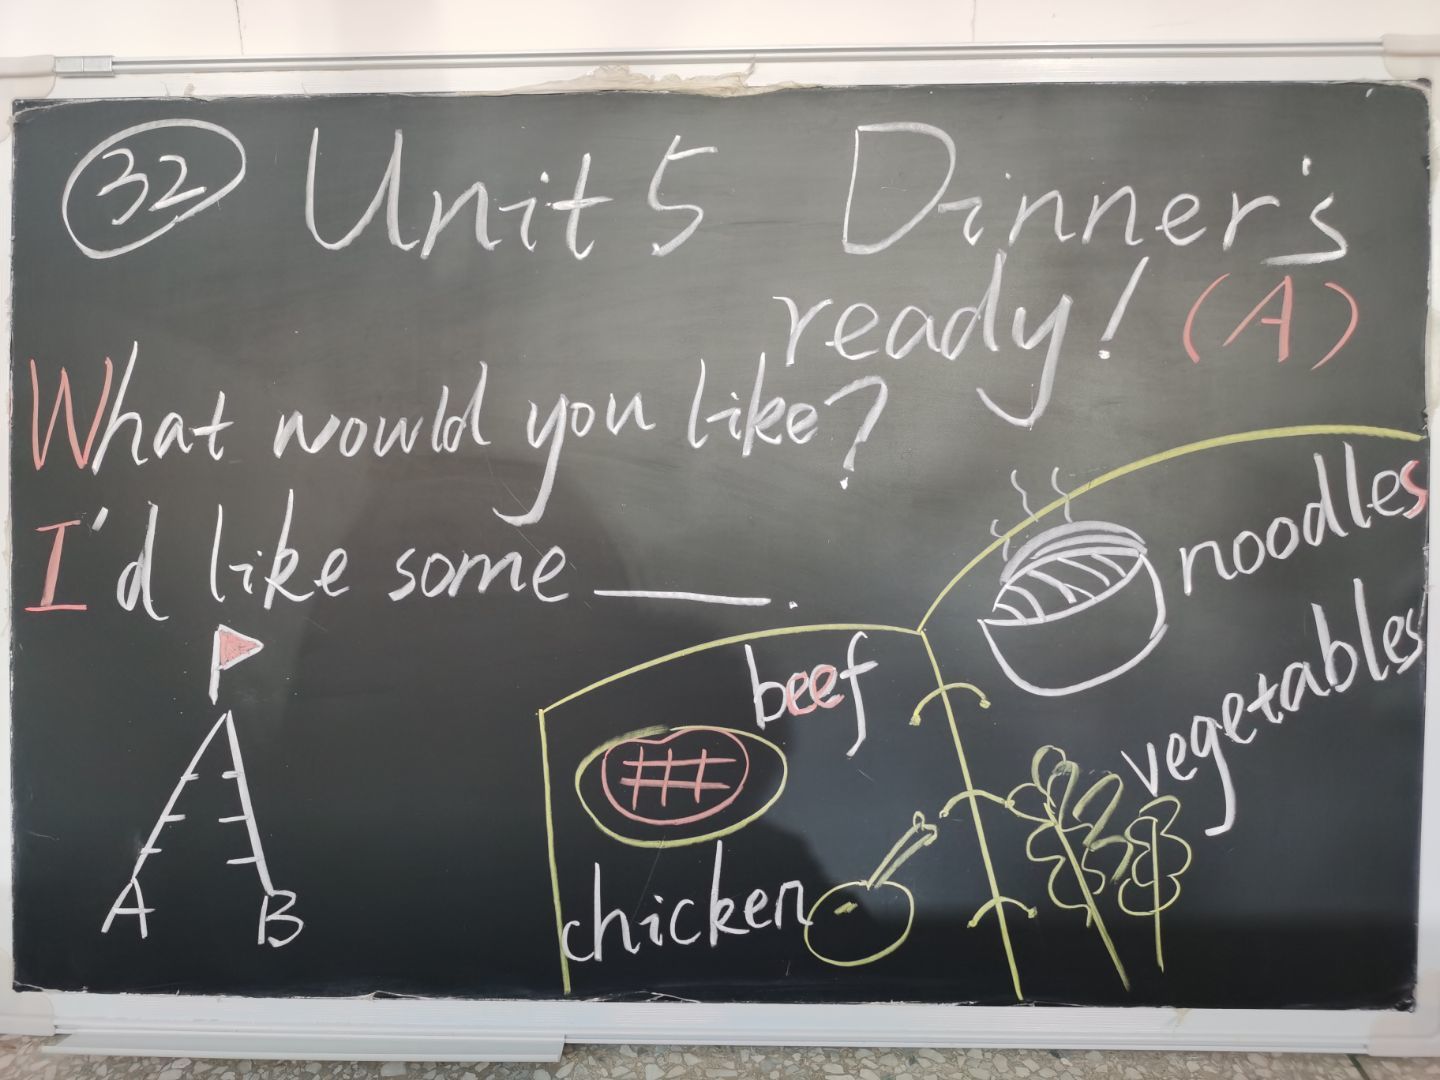 32 Unit 5 Dinner's
ready! (A)
What would you like?
I'd like some ____.
noodles
beef
vegetables
chicken
A B